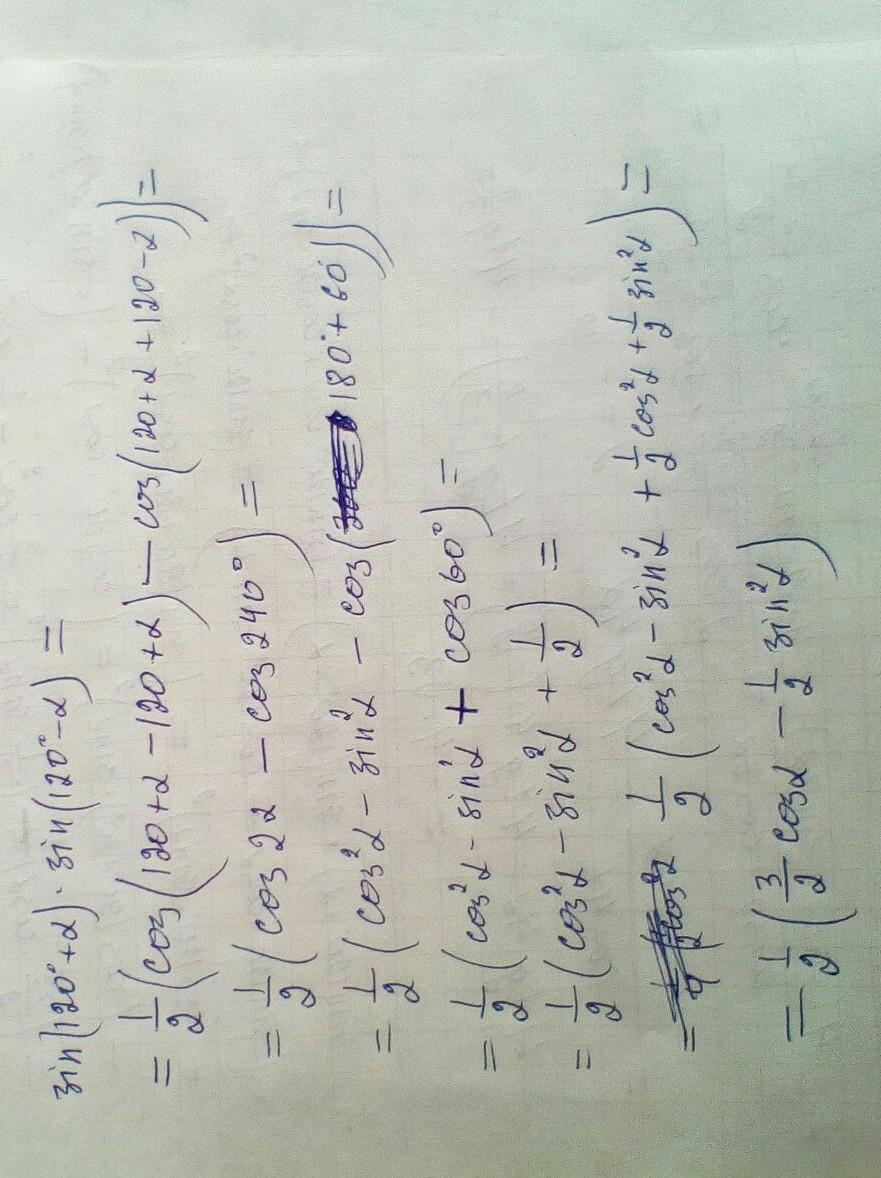 sin(120°+α)·sin(120°-α)=
=1/2(cos(120+α-120+α)-cos(120+α+120-α))=
=1/2(cos2α-cos240°)=
=1/2(cos²α-sin²α-cos(180°+60°))=
=1/2(cos²α-sin²α+cos60°)=
=1/2(cos²α-sin²α+1/2)=
=1/2(cos²α-sin²α+1/2cos²α+1/2sin²α)=
=1/2(3/2cosα-1/2sin²α)